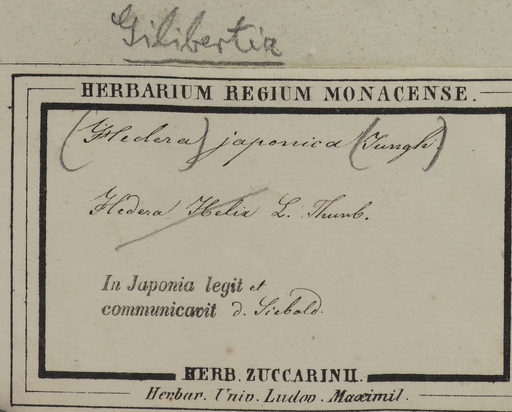 Gilibertia
HERBARIUM REGIUM MONACENSE.
(Hedera) japonica (Jungh.)
Hedera Helix L. Thunb.
In Japonia legit et
communicavit d. Siebold.
HERB. ZUCCARINII.
Herbar. Univ. Ludov. Maximil.